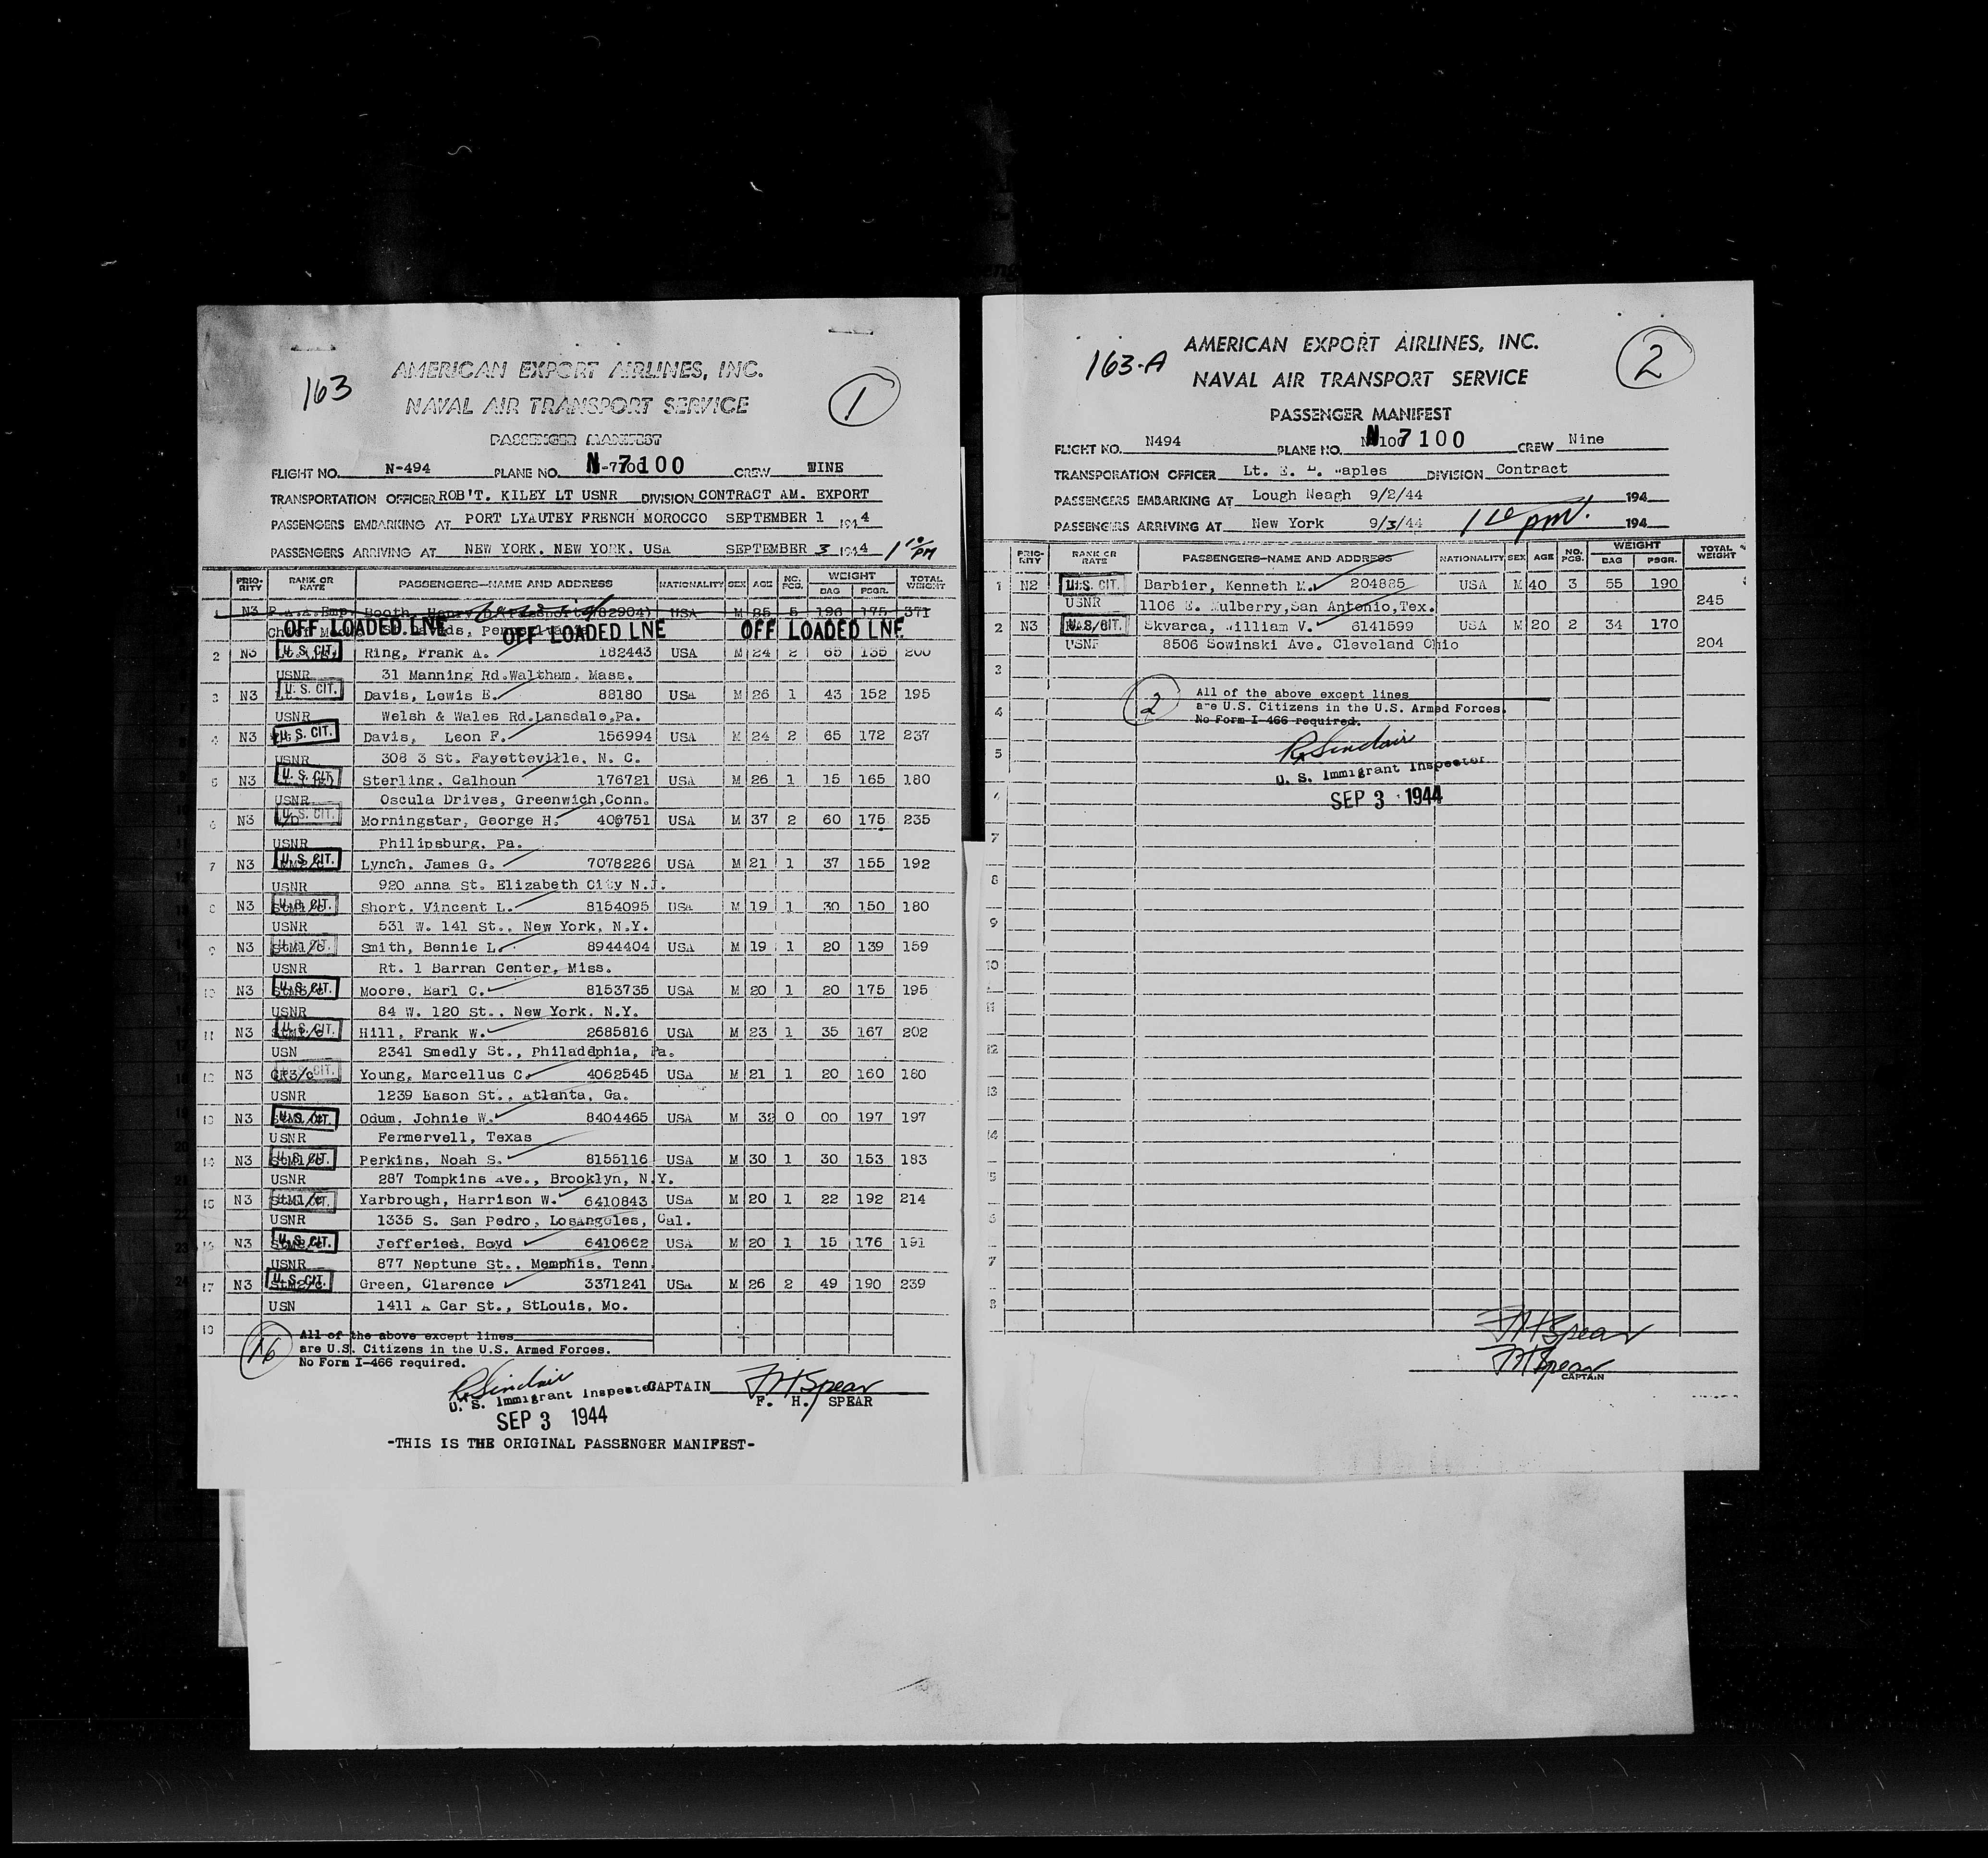 163
AMERICAN EXPORT AIRLINES, INC.
NAVAL AIR TRANSPORT SERVICE
1
PASSENGER MANIFEST
FLIGHT NO. N-494 PLANE NO. N-7100 CREW NINE
TRANSPORTATION OFFICER ROB'T. KILEY LT USNR DIVISION CONTRACT AM. EXPORT
PASSENGERS EMBARKING AT PORT LYAUTEY FRENCH MOROCCO SEPTEMBER 1 1944
PASSENGERS ARRIVING AT NEW YORK. NEW YORK. USA SEPTEMBER 3 1944 1 10 PM
PRIO-RITY RANK OR RATE PASSENGERS—NAME AND ADDRESS NATIONALITY SEX AGE NO. PCS. WEIGHT BAG PSGR. TOTAL WEIGHT
1 N3 Emp. Booth, USA M 5 196 175 371
OFF LOADED LNE OFF LOADED LNE OFF LOADED LNE
2 N3 U.S. CIT. Ring, Frank A. 182443 USA M 24 2 65 135 200
USNR 31 Manning Rd.Waltham. Mass.
3 N3 U.S. CIT. Davis, Lewis E. 88180 USA M 26 1 43 152 195
USNR Welsh & Wales Rd.Lansdale,Pa.
4 N3 U.S. CIT. Davis, Leon F. 156994 USA M 24 2 65 172 237
USNR 308 3 St. Fayetteville, N. C.
5 N3 U.S. CIT. Sterling, Calhoun 176721 USA M 26 1 15 165 180
USNR Oscula Drives, Greenwich,Conn.
6 N3 U.S. CIT. Morningstar, George H. 409751 USA M 37 2 60 175 235
USNR Philipsburg, Pa.
7 N3 U.S. CIT. Lynch, James G. 7078226 USA M 21 1 37 155 192
USNR 920 Anna St. Elizabeth City N.J.
8 N3 U.S. CIT. Short. Vincent L. 8154095 USA M 19 1 30 150 180
USNR 531 W. 141 St., New York, N.Y.
9 N3 StM1/c Smith, Bennie L. 8944404 USA M 19 1 20 139 159
USNR Rt. 1 Barran Center, Miss.
10 N3 U.S. CIT. Moore, Earl C. 8153735 USA M 20 1 20 175 195
USNR 84 W. 120 St., New York. N.Y.
11 N3 U.S. CIT. Hill, Frank W. 2685816 USA M 23 1 35 167 202
USN 2341 Smedly St., Philaddphia, Pa.
12 N3 CIT. Young, Marcellus C. 4062545 USA M 21 1 20 160 180
USNR 1239 Eason St., Atlanta, Ga.
13 N3 U.S. CIT. Odum, Johnie W. 8404465 USA M 32 0 00 197 197
USNR Fermervell, Texas
14 N3 U.S. CIT. Perkins, Noah S. 8155116 USA M 30 1 30 153 183
USNR 287 Tompkins Ave., Brooklyn, N.Y.
15 N3 StM1/c Yarbrough, Harrison W. 6410843 USA M 20 1 22 192 214
USNR 1335 S. San Pedro, LosAngeles, Cal.
16 N3 U.S. CIT. Jefferies, Boyd 6410662 USA M 20 1 15 176 191
USNR 877 Neptune St., Memphis. Tenn
17 N3 U.S. CIT. Green, Clarence 3371241 USA M 26 2 49 190 239
USN 1411 A Car St., StLouis, Mo.
16
All of the above except lines
are U.S. Citizens in the U.S. Armed Forces.
No Form I-466 required.
R Sinclair
U. S. Immigrant Inspector
SEP 3 1944
CAPTAIN F H Spear
F. H. SPEAR
-THIS IS THE ORIGINAL PASSENGER MANIFEST-
163-A
AMERICAN EXPORT AIRLINES, INC.
NAVAL AIR TRANSPORT SERVICE
2
PASSENGER MANIFEST
FLIGHT NO. N494 PLANE NO. N 7100 CREW Nine
TRANSPORATION OFFICER Lt. E. Maples DIVISION Contract
PASSENGERS EMBARKING AT Lough Neagh 9/2/44 194
PASSENGERS ARRIVING AT New York 9/3/44 1 10 pm. 194
PRIO-RITY RANK OR RATE PASSENGERS—NAME AND ADDRESS NATIONALITY SEX AGE NO. PCS. WEIGHT BAG PSGR. TOTAL WEIGHT
1 N2 U.S. CIT. Barbier, Kenneth M. 204885 USA M 40 3 55 190
USNR 1106 E. Mulberry,San Antonio,Tex. 245
2 N3 U.S. CIT. Skvarca, William V. 6141599 USA M 20 2 34 170
USNR 8506 Sowinski Ave. Cleveland Ohio 204
3
4
5
2
All of the above except lines
are U.S. Citizens in the U.S. Armed Forces.
No Form I-466 required.
R Sinclair
U. S. Immigrant Inspector
SEP 3 1944
7
8
9
10
11
12
13
14
5
7
F H Spear
F H Spear
CAPTAIN